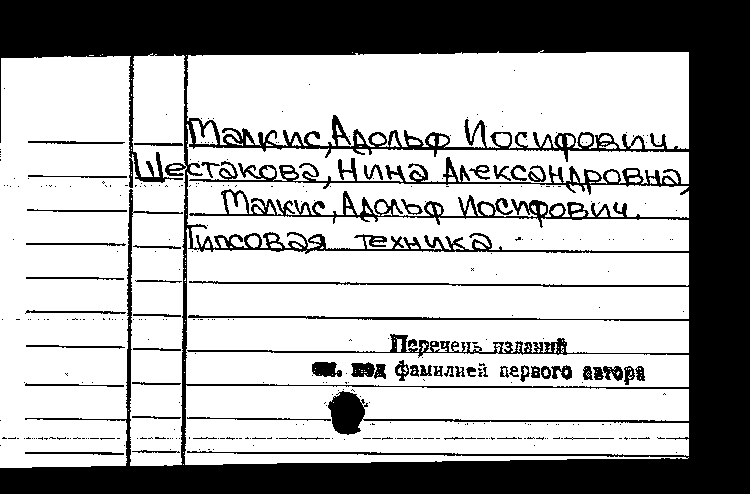 Малкис, Адольф Иосифович.
Шестакова, Нина Александровна,
Малкис, Адольф Иосифович.
Гипсовая техника.
Перечень изданий
см. под фамилией первого автора